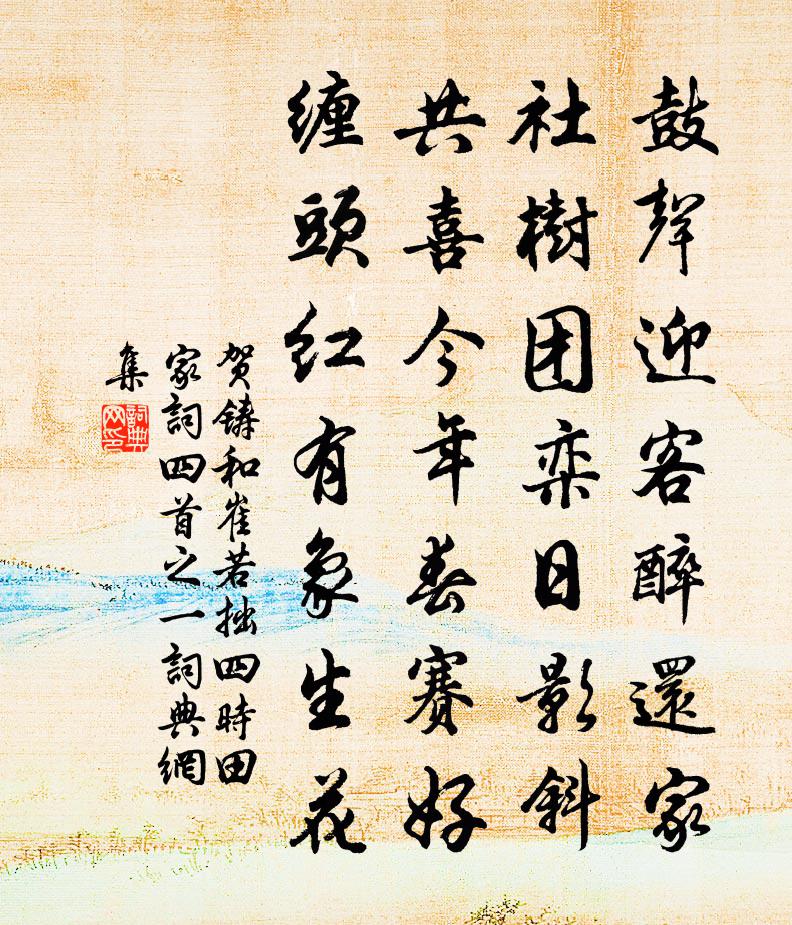 鼓聲迎客醉還家
社樹团栾日影斜
共喜今年春賽好
缠頭红有象生花
贺铸和崔若拙四時田
家詞四首之一詞典網
集
詞典
网印